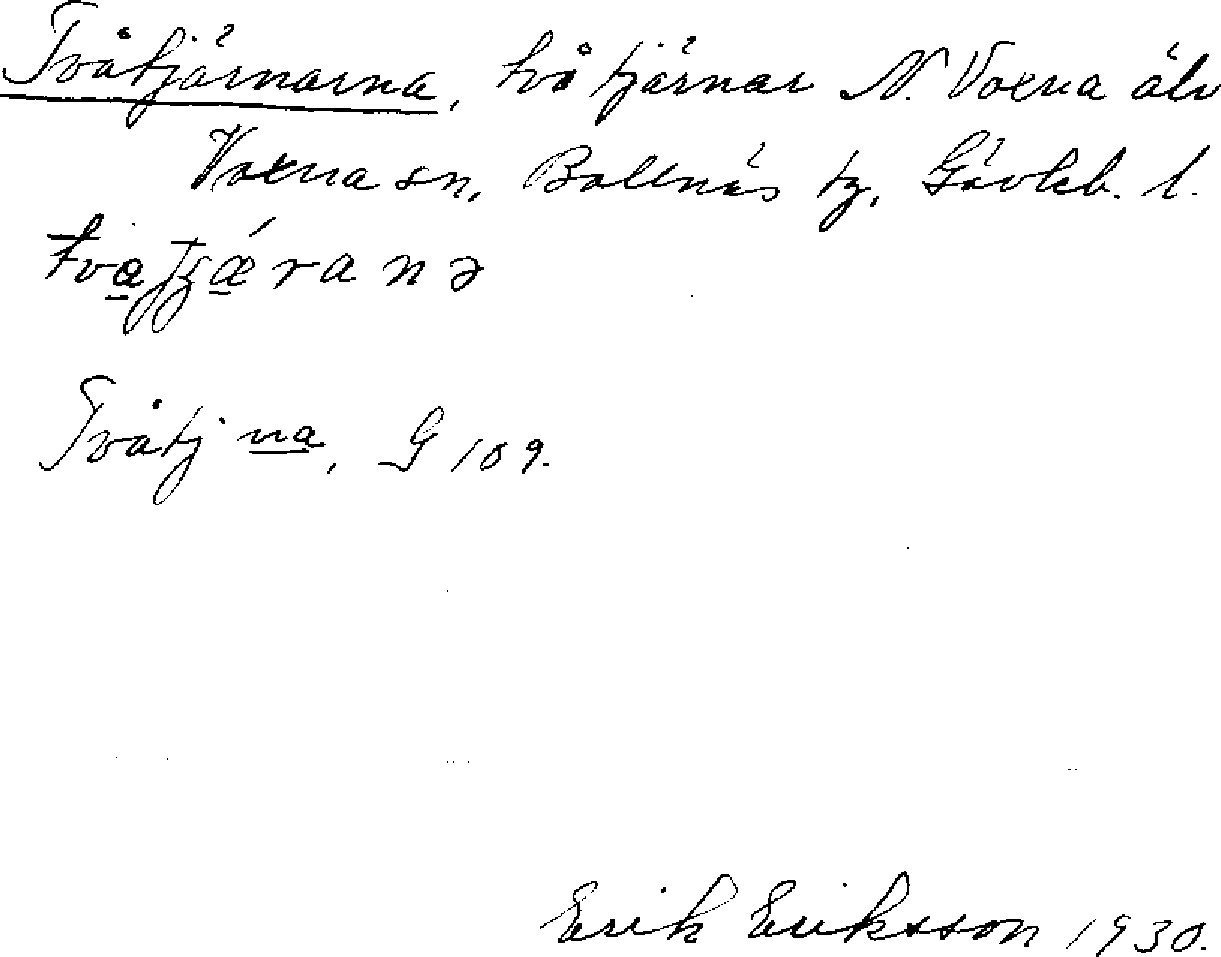 Tvåtjärnarna, två tjärnar N. Voxna älv
Voxna sn, Bollnäs tg, Gävleb. l.
Tvåtj na, G 109.
Erik Eriksson 1930.